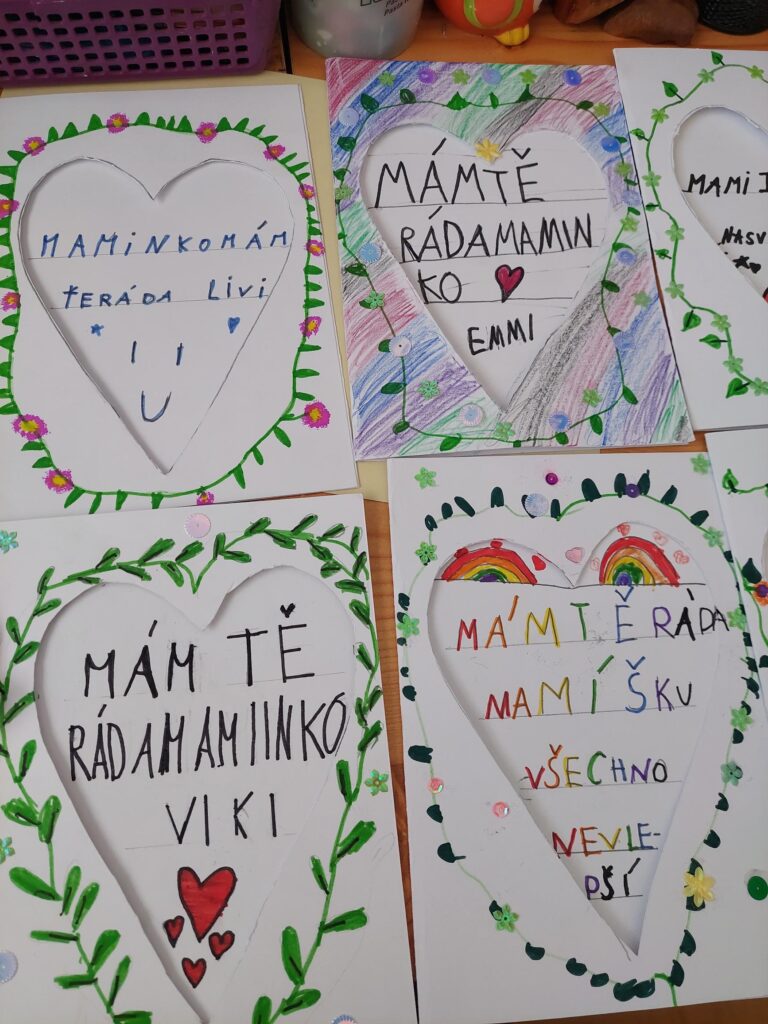 MAMINKOMÁM
TĚRÁDA LIVI
MÁMTĚ
RÁDAMAMIN
KO
EMMI
MAMI
MÁM TĚ
RÁDAMAMIINKO
VIKI
MÁM TĚ RÁDA
MAMÍŠKU
VŠECHNO
NEVLE-
PŠÍ